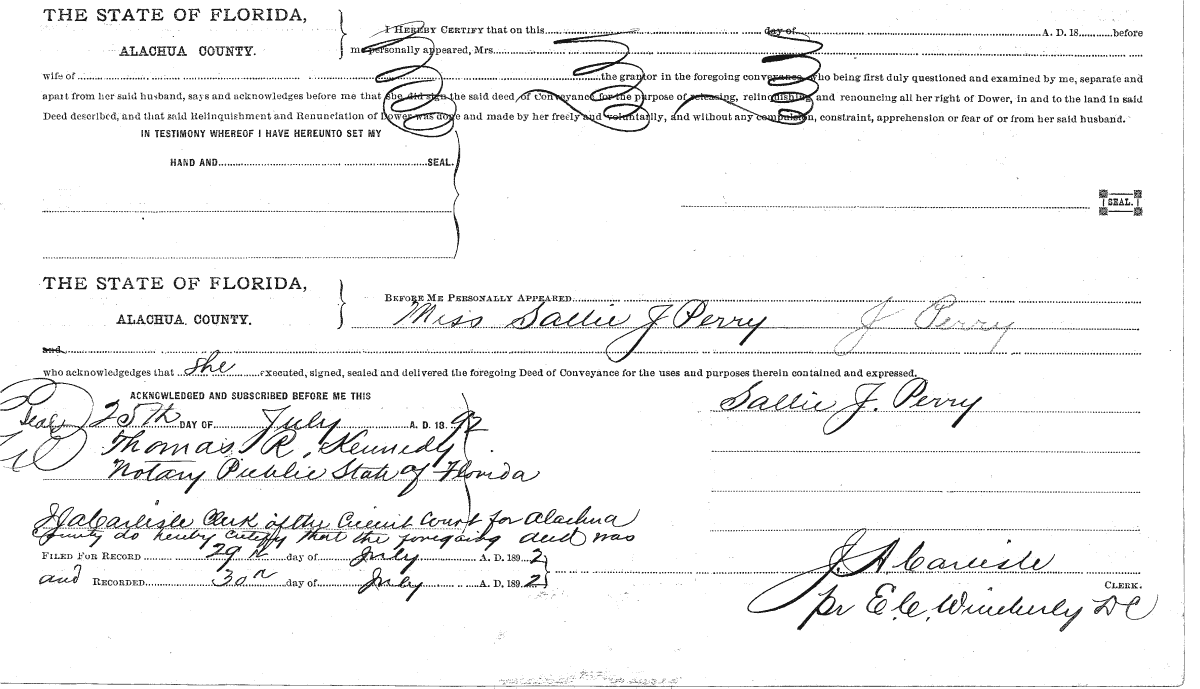 THE STATE OF FLORIDA,
ALACHUA COUNTY.
I HEREBY CERTIFY that on this day of A. D. 18 before
me personally appeared, Mrs.
wife of the grantor in the foregoing conveyance, who being first duly questioned and examined by me, separate and
apart from her said husband, says and acknowledges before me that she did sign the said deed of Conveyance for the purpose of releasing, relinquishing and renouncing all her right of Dower, in and to the land in said
Deed described, and that said Relinquishment and Renunciation of Dower was done and made by her freely and voluntarily, and without any compulsion, constraint, apprehension or fear of or from her said husband.
IN TESTIMONY WHEREOF I HAVE HEREUNTO SET MY
HAND AND SEAL.
SEAL.
THE STATE OF FLORIDA,
ALACHUA COUNTY.
BEFORE ME PERSONALLY APPEARED
Miss Sallie J Perry J Perry
and
who acknowledges that she executed, signed, sealed and delivered the foregoing Deed of Conveyance for the uses and purposes therein contained and expressed.
ACKNOWLEDGED AND SUBSCRIBED BEFORE ME THIS
Sallie J. Perry
Seal 25th DAY OF July A. D. 18 92
Thomas R. Kennedy
Notary Public State of Florida
J A Carlisle Clerk of the Circuit Court for Alachua
County do hereby certify that the foregoing deed was
FILED FOR RECORD 29th day of July A. D. 189 2
and RECORDED 30th day of July A. D. 189 2
J. A Carlisle
CLERK.
pr E. C. Wimberly DC